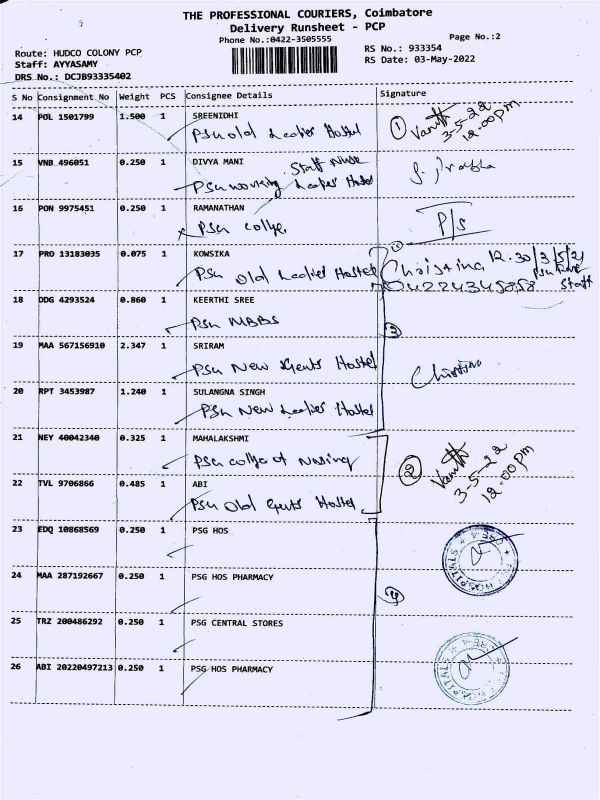 THE PROFESSIONAL COURIERS, Coimbatore
Delivery Runsheet - PCP
Phone No.:0422-3505555
Page No.:2
Route: HUDCO COLONY PCP
Staff: AYYASAMY
DRS No.: DCJB93335402
RS No.: 933354
RS Date: 03-May-2022
S No Consignment No Weight PCS Consignee Details Signature
14 POL 1501799 1.500 1 SREENIDHI
Psg old Ladies Hostel
① Vanitha 3-5-22 12.00pm
15 VNB 496051 0.250 1 DIVYA MANI
Staff Nurse
Psg working Ladies Hostel
16 PON 9975451 0.250 1 RAMANATHAN
Psg college
P/s
17 PRO 13183035 0.075 1 KOWSIKA
Psg old Ladies Hostel
Christina 12.30/3/5/21
04224345858 Staff
18 DDG 4293524 0.860 1 KEERTHI SREE
Psg MBBS
③
19 MAA 567156910 2.347 1 SRIRAM
Psg New Gents Hostel
Christina
20 RPT 3453987 1.240 1 SULANGNA SINGH
Psg New Ladies Hostel
21 NEY 40042340 0.325 1 MAHALAKSHMI
Psg college of Nursing
② Vanitha 3-5-22 12.00pm
22 TVL 9706866 0.485 1 ABI
Psg Old Gents Hostel
23 EDQ 10868569 0.250 1 PSG HOS
24 MAA 287192667 0.250 1 PSG HOS PHARMACY
④
25 TRZ 200486292 0.250 1 PSG CENTRAL STORES
26 ABI 20220497213 0.250 1 PSG HOS PHARMACY